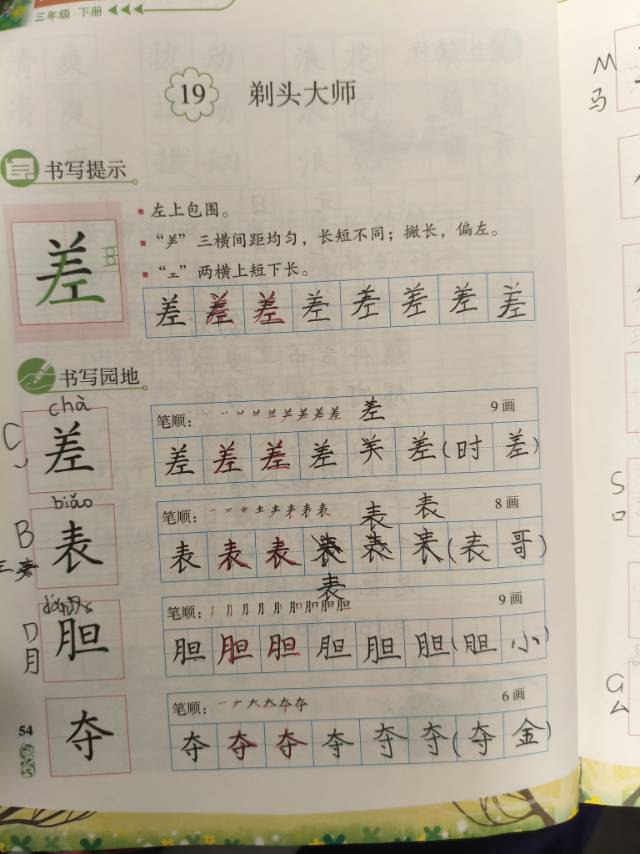 三年级 下册
19 剃头大师
书写提示
左上包围。
“⺶”三横间距均匀，长短不同；撇长，偏左。
“工”两横上短下长。
差
差 差 差 差 差 差 差 差
书写园地
chà
C
差
笔顺：
差
9画
差 差 差 差 关 差(时 差)
biǎo
B
表
笔顺：
表 表
8画
表 表 表 表 (表 哥)
表
D
月
胆
笔顺：
9画
胆 胆 胆 胆 胆 胆(胆 小)
夺
笔顺：
6画
夺 夺 夺 夺 夺 夺(夺 金)
54
M
马
S
口
G
厶